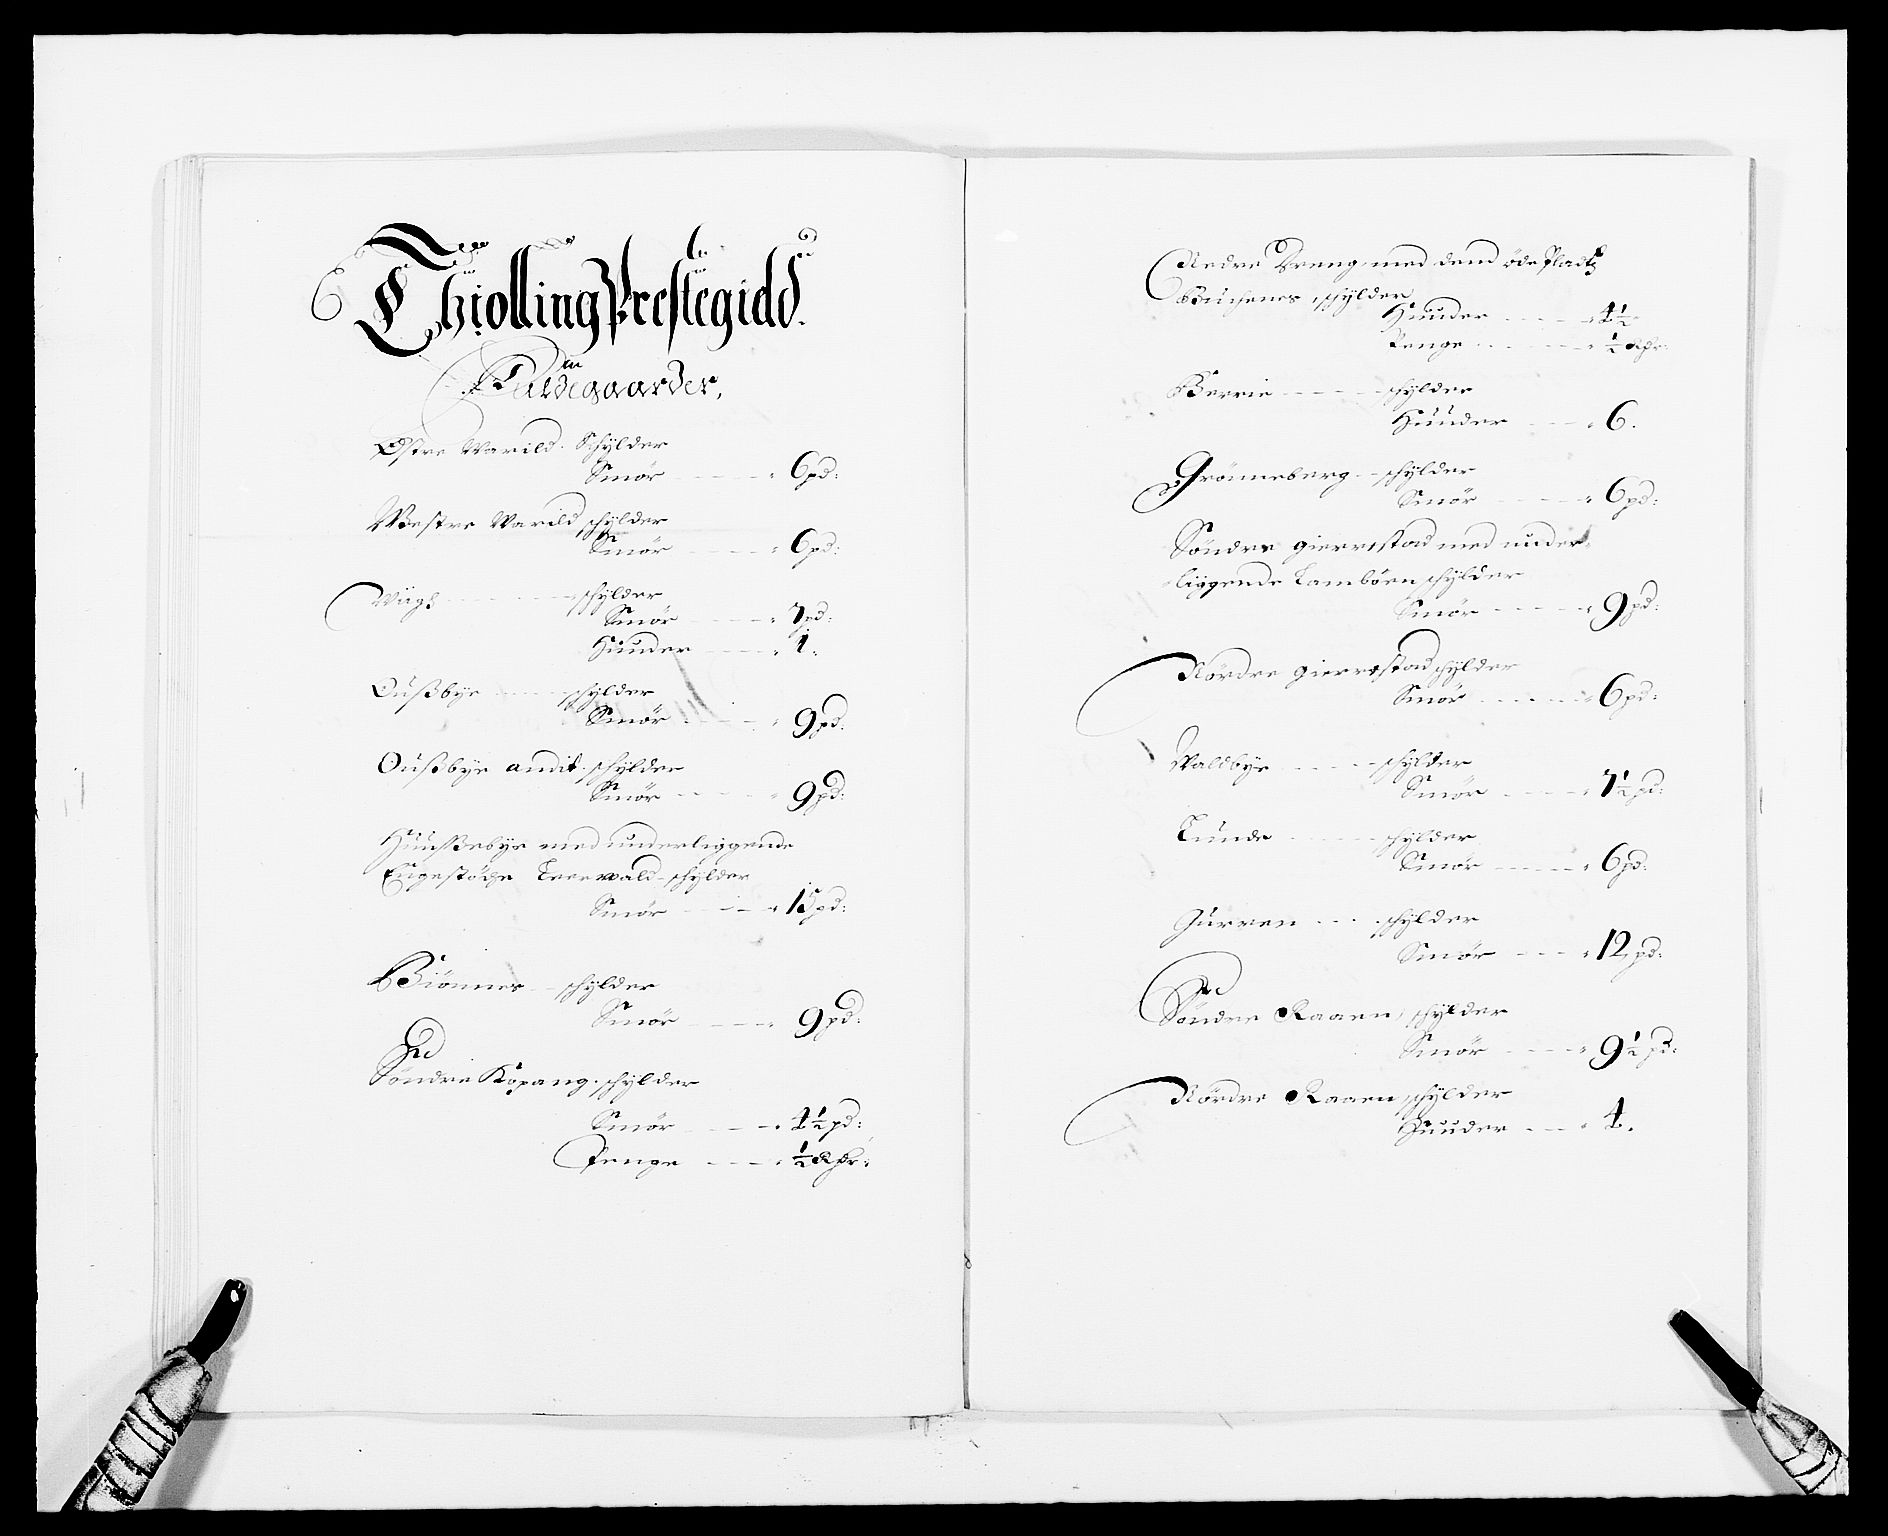 Thiølling Prestegield.
Fuldegaarder,
Østre Warild. Schylder
Smør - - - - 6 pd:
Westre Warild schylder
Smør - - - - 6 pd:
Wiigh - - - - schylder
Smør - - - - 7 pd:
Huuder - - - - 1.
Oußbye - - - schylder
Smør - - - - 9 pd:
Oußbye andit. schylder
Smør - - - - 9 pd:
Huußebye med underliggende
Engestöche Leerwald - schylder
Smør - - - - 15 pd:
Biönnes - schylder
Smør - - - - 9 pd:
Söndre Kopang. schylder
Smør - - - - 4½ pd:
Penge - - - - ½ Rdr:
Nedre Weng med dend öde Pladtz
schylder
Huuder - - - - 4½
Penge - - - - ½ Rdr:
Berrie - - - - schylder
Huuder - - - - 6.
Grönneberg - schylder
Smør - - - - 6 pd:
Söndre gierrestad med under-
liggende Lamböen schylder
Smør - - - - 9 pd:
Nördre gierrestad schylder
Smør - - - - 6 pd:
Waldbye - - - - schylder
Smør - - - - 7½ pd:
Lunde - - - - schylder
Smør - - - - 6 pd:
Gurren - - - schylder
Smør - - - - 12 pd:
Söndre Raaen, schylder
Smør - - - - 9½ pd:
Nördre Raaen schylder
Huuder - - - 4.